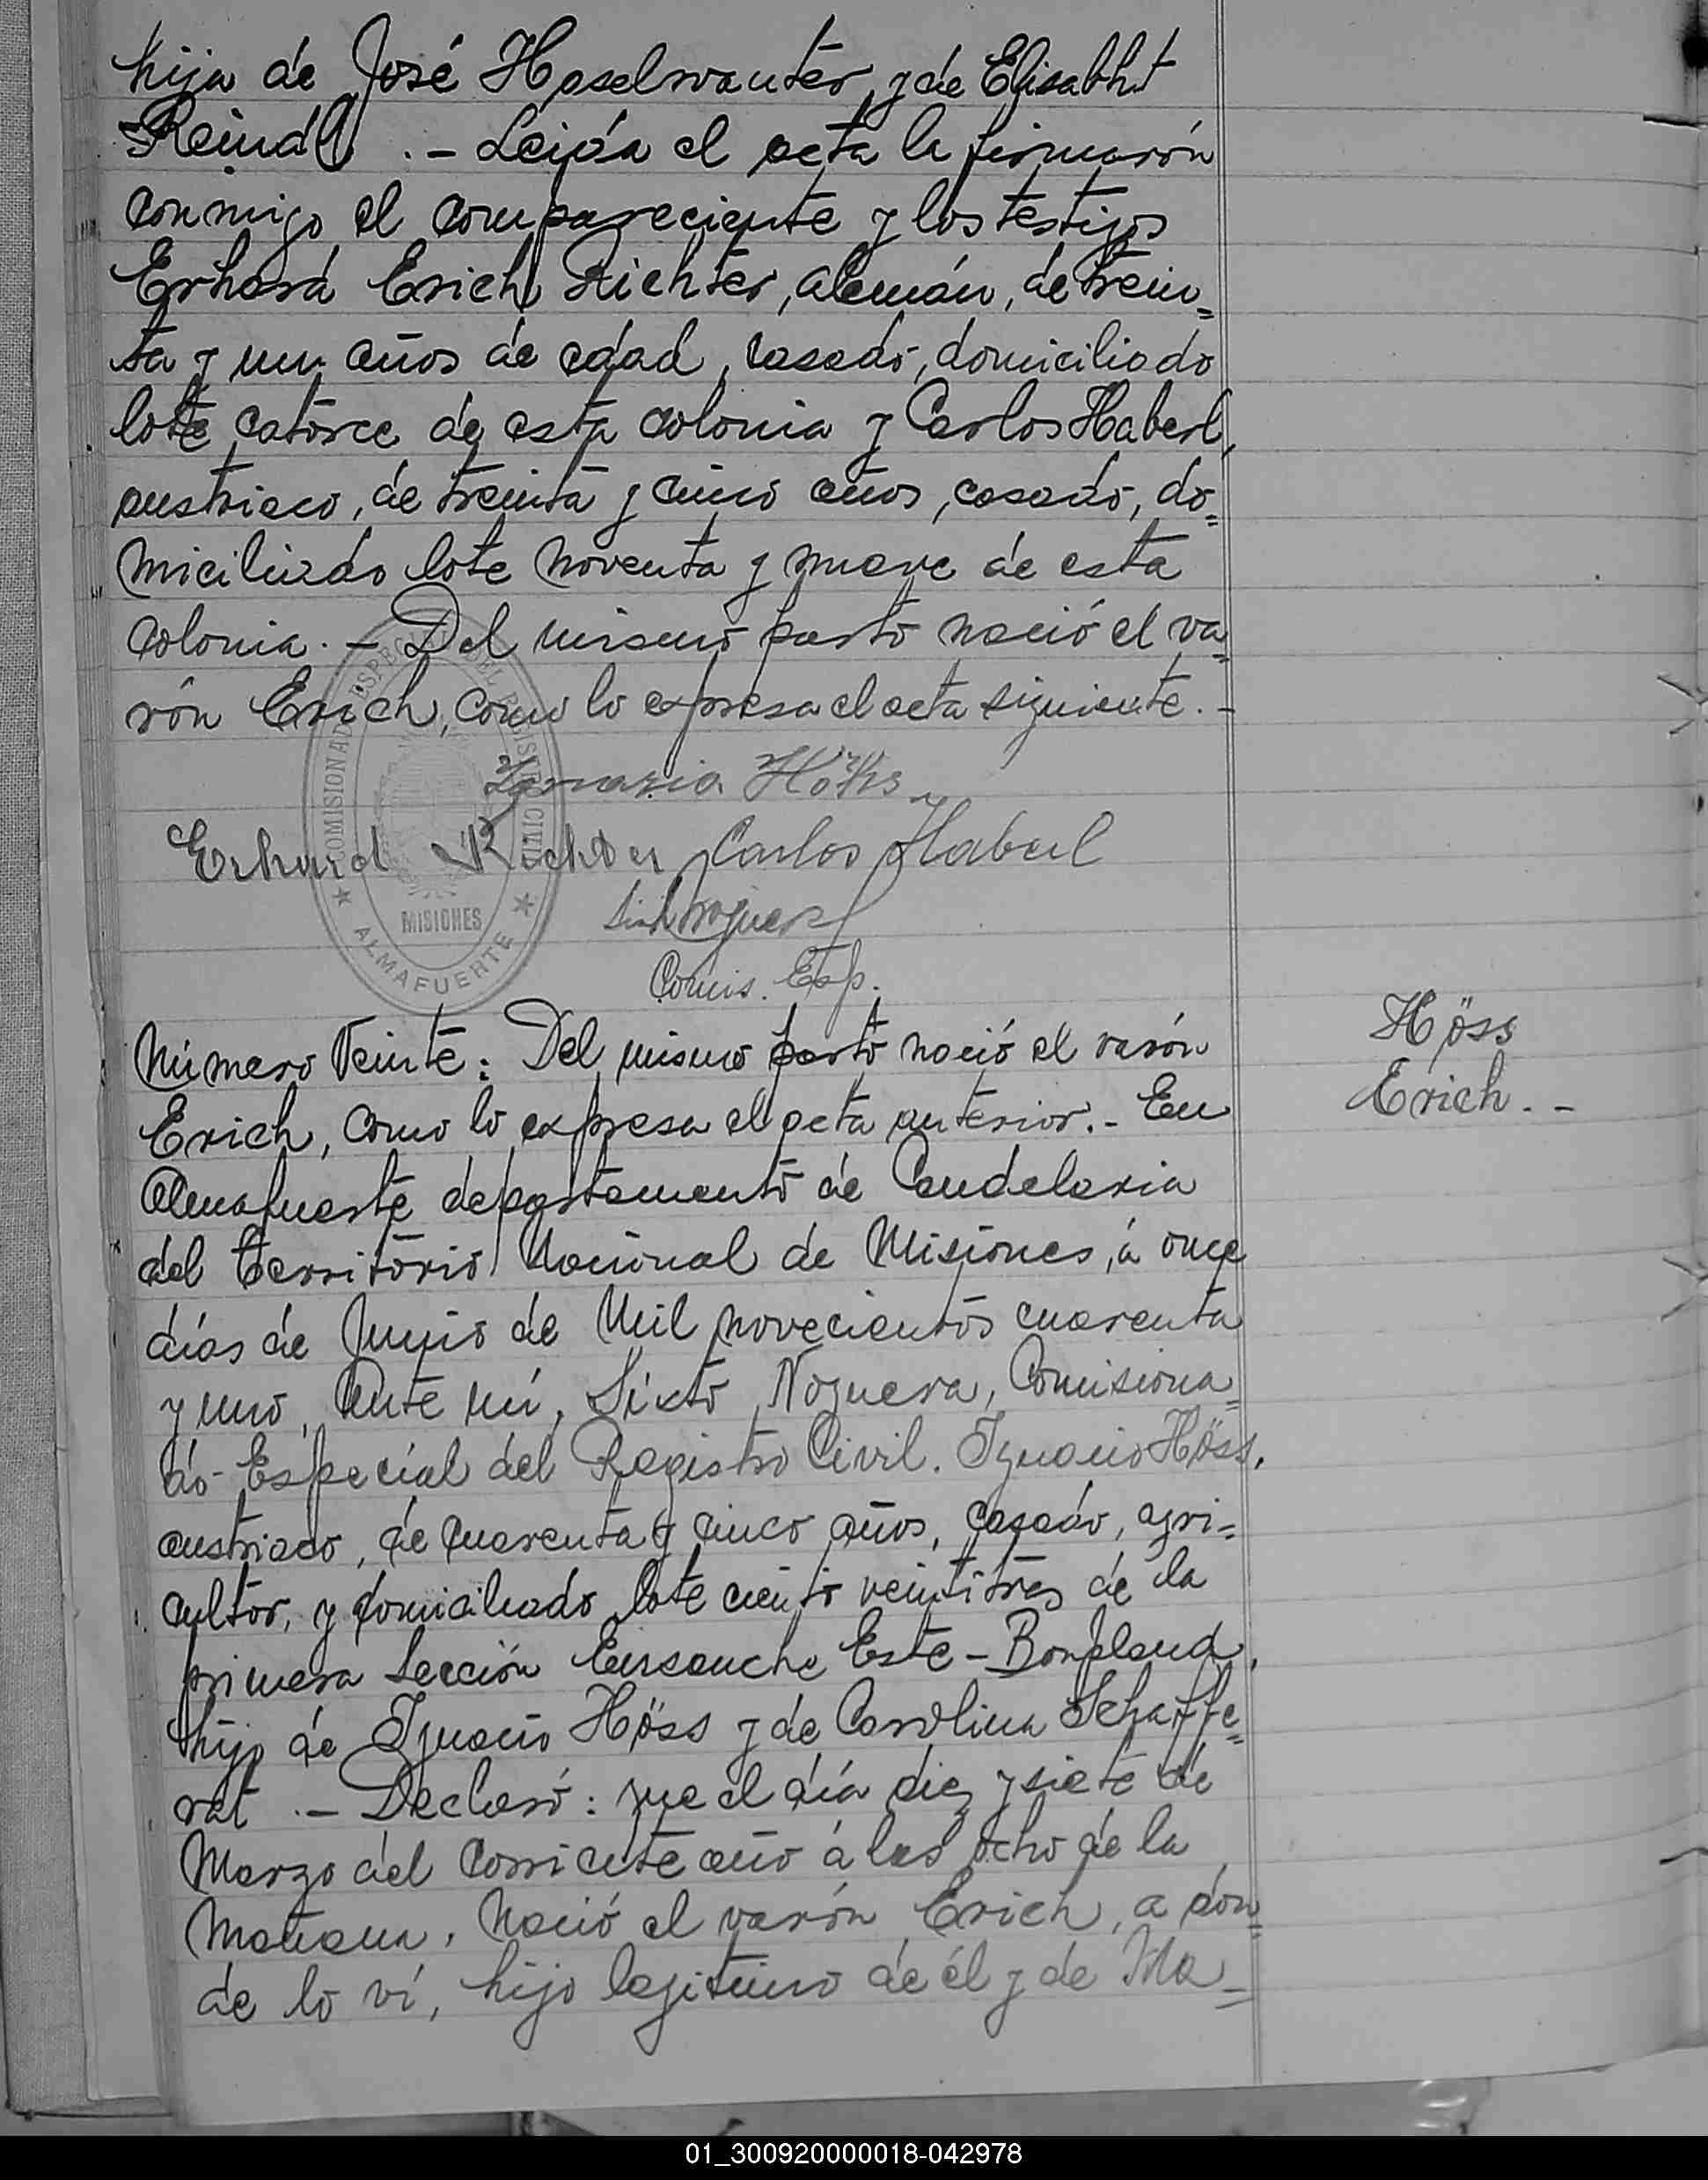 hija de José Haselwanter, y de Elisabht
Reindl .- Leída el acta la firmarón
conmigo el compareciente y los testigos
Erhard Erich Richter, alemán, de trein=
ta y un años de edad, casado, domiciliado
lote catorce de esta colonia y Carlos Haberl,
austriaco, de treinta y cinco años, casado, do=
miciliado lote noventa y nueve de esta
colonia. - Del mismo parto nació el va=
rón Erich, como lo expresa el acta siguiente. -
COMISIONADO ESPECIAL DEL REGISTRO CIVIL
MISIONES
★ ALMAFUERTE ★
Höss
Erhard Richter Carlos Haberl
Comis. Esp.
Número Veinte: Del mismo parto nació el varón
Erich, como lo expresa el acta anterior. - En
Almafuerte departamento de Candelaria
del Territorio Nacional de Misiones, á once
días de Junio de Mil novecientos cuarenta
y uno, Ante mí, Sixto Noguera, Comisiona=
do Especial del Registro Civil. Ignacio Höss,
austriaco, de cuarenta y cinco años, casado, agri=
cultor, y domiciliado lote ciento veintitres de la
primera Sección Ensanche Este - Bonpland,
hijo de Ignacio Höss y de Carolina Schaffe=
rat .- Declaró: que el día diez y siete de
Marzo del corriente año á las ocho de la
mañana, nació el varón Erich, a don=
de lo ví, hijo legitimo de él y de Ma=
Höss
Erich. -
01_300920000018-042978